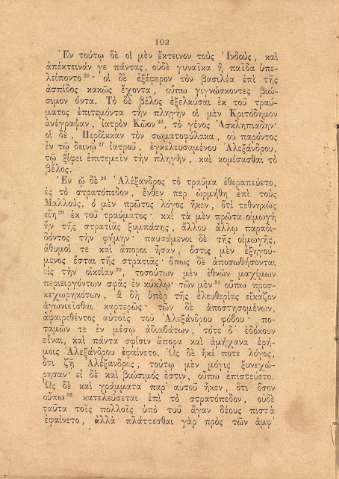 102
Ἐν τούτῳ δὲ οἱ μὲν ἔκτεινον τοὺς Ἰνδούς, καὶ
ἀπέκτεινάν γε πάντας, οὐδὲ γυναῖκα ἢ παῖδα ὑπε-
λείποντο · οἱ δὲ ἐξέφερον τὸν βασιλέα ἐπὶ τῆς
ἀσπίδος κακῶς ἔχοντα, οὔπω γιγνώσκοντες βιώ-
σιμον ὄντα. Τὸ δὲ βέλος ἐξελκῦσαι ἐκ τοῦ τραύ-
ματος ἐπιτεμόντα τὴν πληγὴν οἱ μὲν Κριτόδημον
ἀνέγραψαν, ἰατρὸν Κῷον, τὸ γένος Ἀσκληπιάδην·
οἱ δέ, Περδίκκαν τὸν σωματοφύλακα, οὐ παρόντος
ἐν τῷ δεινῷ ἰατροῦ, ἐγκελευσαμένου Ἀλεξάνδρου,
τῷ ξίφει ἐπιτεμεῖν τὴν πληγήν, καὶ κομίσασθαι τὸ
βέλος.
Ἐν ᾧ δὲ Ἀλέξανδρος τὸ τραῦμα ἐθεραπεύετο,
ἐς τὸ στρατόπεδον, ἔνθεν περ ὡρμήθη ἐπὶ τοὺς
Μαλλούς, ὁ μὲν πρῶτος λόγος ἧκεν, ὅτι τεθνηκὼς
εἴη ἐκ τοῦ τραύματος· καὶ τὰ μὲν πρῶτα οἰμωγὴ
ἦν τῆς στρατιᾶς ξυμπάσης, ἄλλου ἄλλῳ παραδι-
δόντος τὴν φήμην· παυσάμενοι δὲ τῆς οἰμωγῆς,
ἄθυμοί τε καὶ ἄποροι ἦσαν, ὅστις μὲν ἐξηγού-
μενος ἔσται τῆς στρατιᾶς· ὅπως δὲ ἀποσωθήσονται
εἰς τὴν οἰκείαν, τοσούτων μὲν ἐθνῶν μαχίμων
περιειργόντων σφᾶς ἐν κύκλῳ· τῶν μὲν οὔπω προσ-
κεχωρηκότων, ἃ δὴ ὑπὲρ τῆς ἐλευθερίας εἴκαζον
ἀγωνιεῖσθαι καρτερῶς· τῶν δὲ ἀποστησομένων,
ἀφαιρεθέντος αὐτοῖς τοῦ Ἀλεξάνδρου φόβου· πο-
ταμῶν τε ἐν μέσῳ ἀδιαβάτων, τότε δ' ἐδόκουν
εἶναι, καὶ πάντα σφίσιν ἄπορα καὶ ἀμήχανα ἐρή-
μοις Ἀλεξάνδρου ἐφαίνετο. Ὡς δὲ ἧκέ ποτε λόγος,
ὅτι ζῇ Ἀλέξανδρος, τούτῳ μὲν μόγις ξυνεχώ-
ρησαν· εἰ δὲ καὶ βιώσιμός ἐστιν, οὔπω ἐπιστεύετο.
Ὡς δὲ καὶ γράμματα παρ' αὐτοῦ ἧκεν, ὅτι ὅσον
οὔπω κατελεύσεται ἐπὶ τὸ στρατόπεδον, οὐδὲ
ταῦτα τοῖς πολλοῖς ὑπὸ τοῦ ἄγαν δέους πιστὰ
ἐφαίνετο, ἀλλὰ πλάττεσθαι γὰρ πρὸς τῶν ἀμφ'